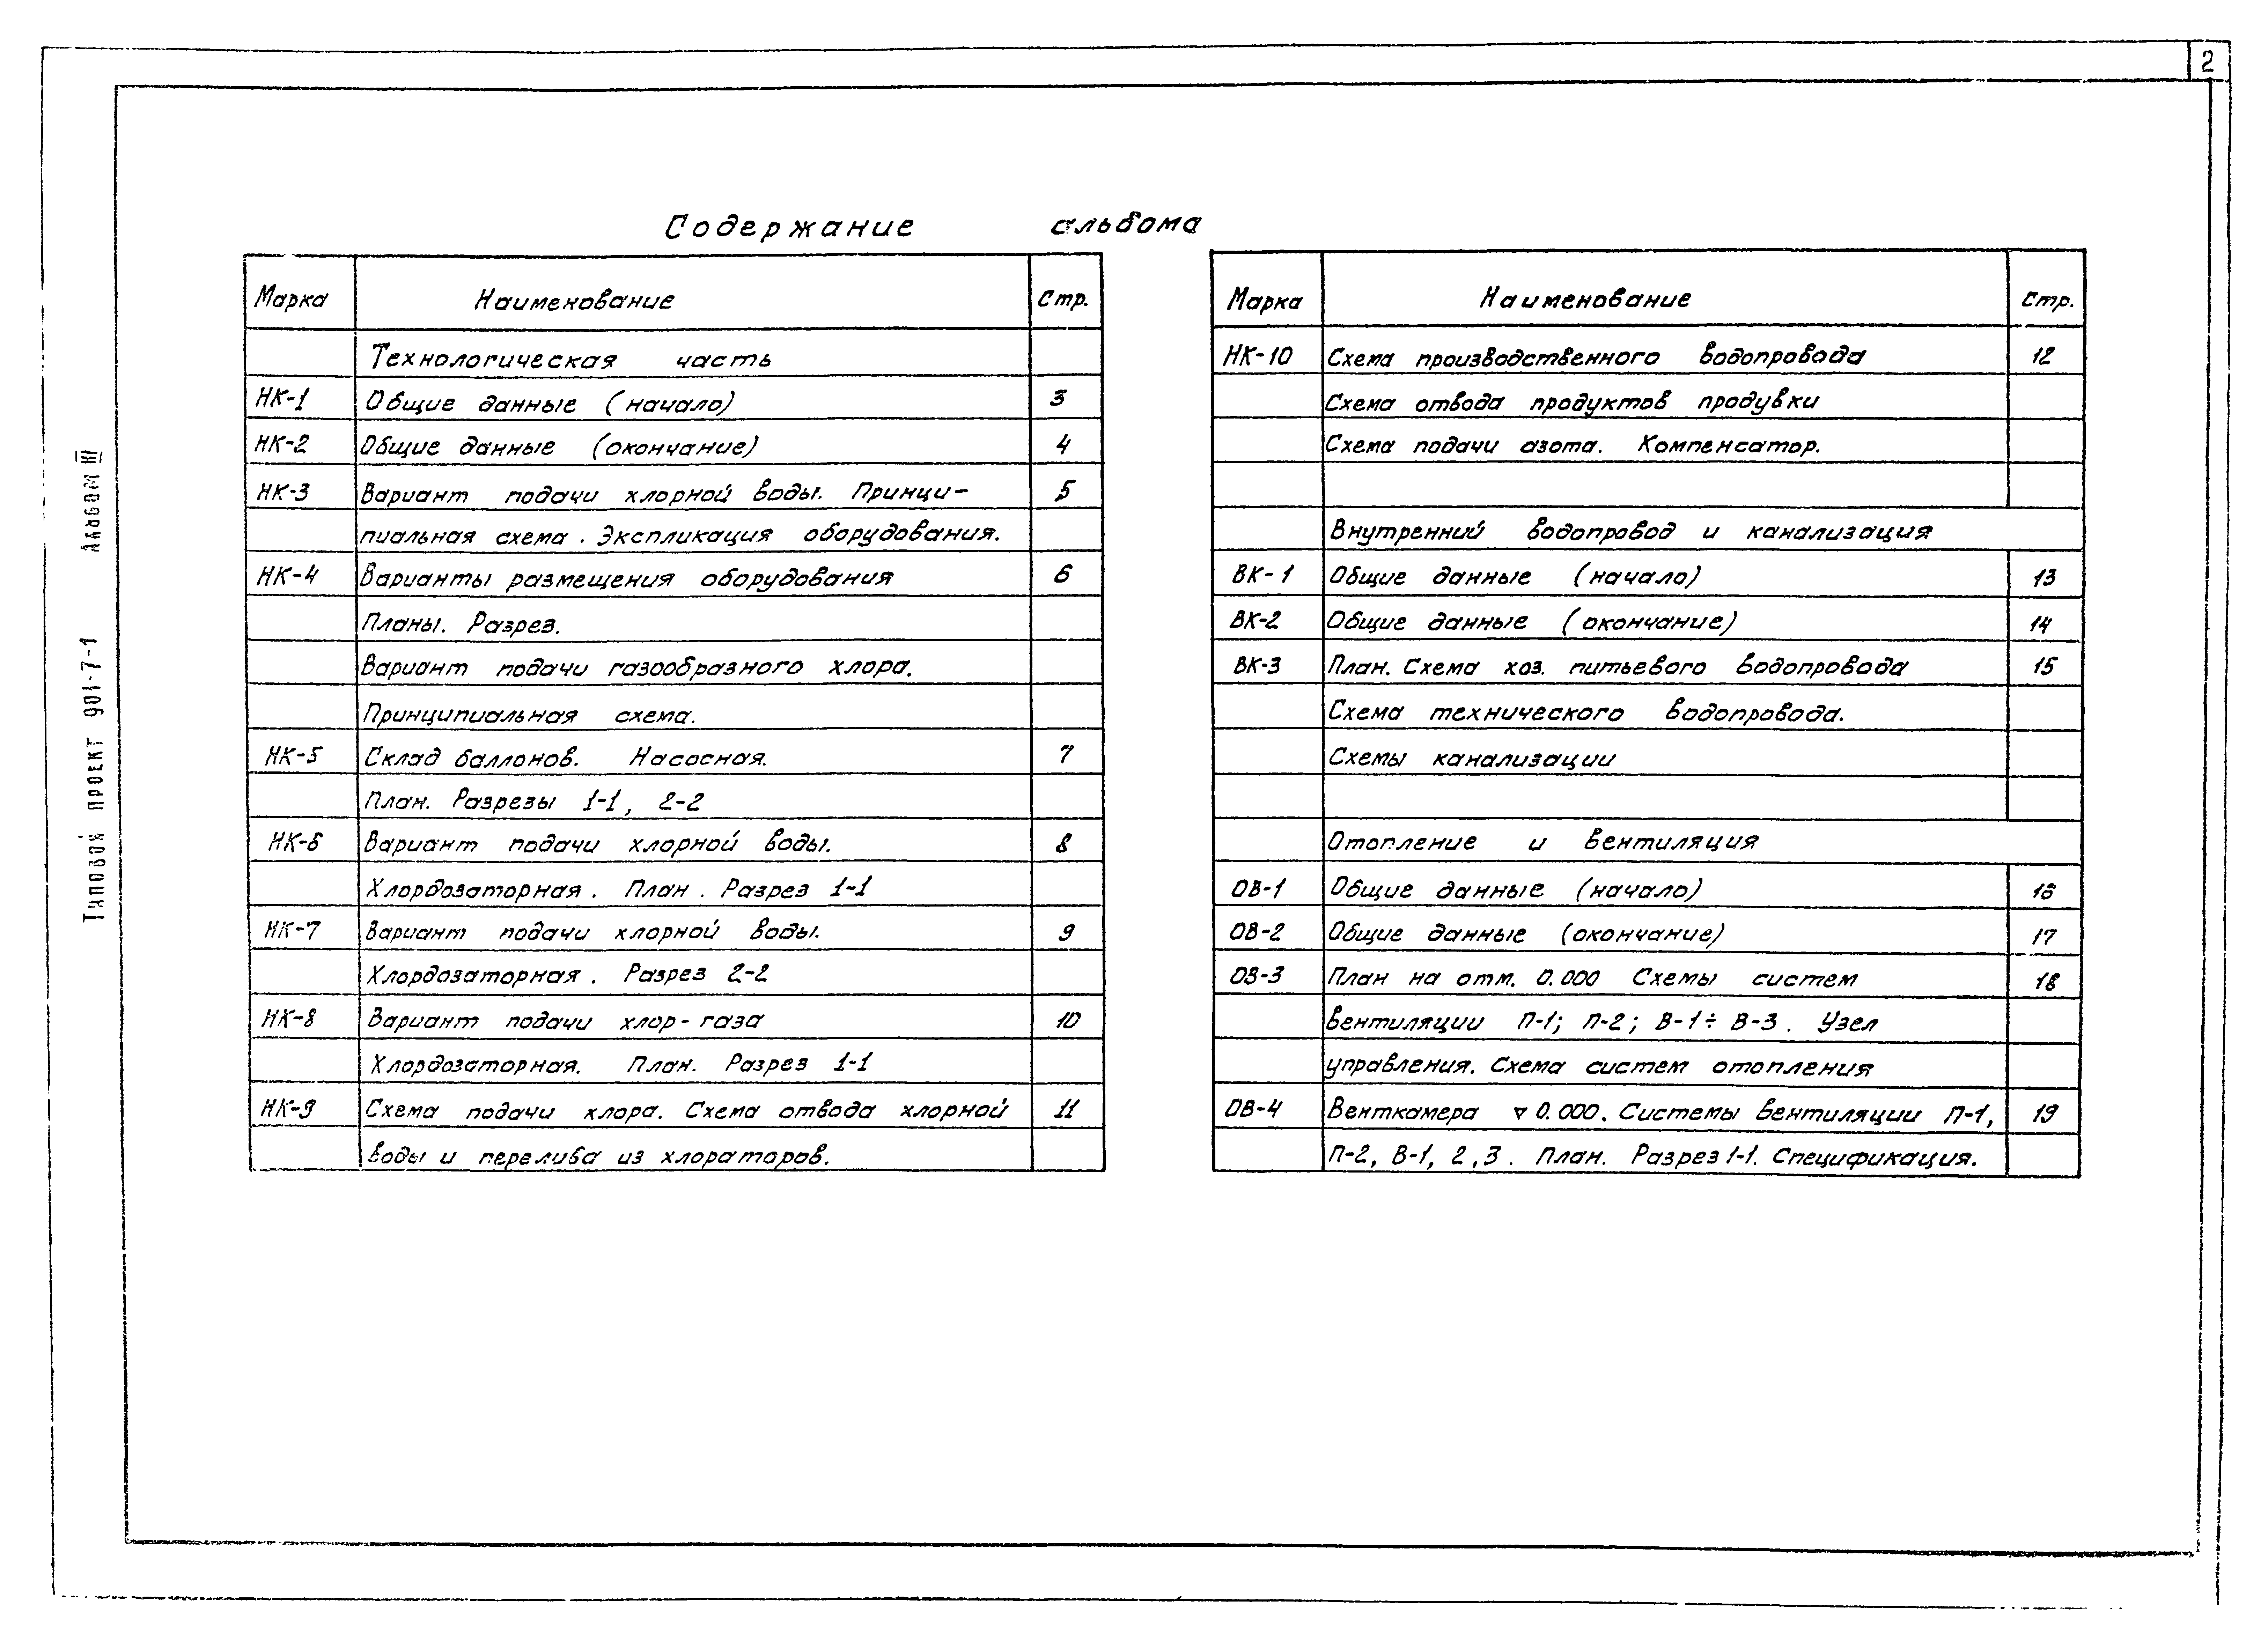 2
Содержание альбома
Марка Наименование Стр.
Технологическая часть
НК-1 Общие данные (начало) 3
НК-2 Общие данные (окончание) 4
НК-3 Вариант подачи хлорной воды. Принци- 5
пиальная схема. Экспликация оборудования.
НК-4 Варианты размещения оборудования 6
Планы. Разрез.
Вариант подачи газообразного хлора.
Принципиальная схема.
НК-5 Склад баллонов. Насосная. 7
План. Разрезы 1-1, 2-2
НК-6 Вариант подачи хлорной воды. 8
Хлордозаторная. План. Разрез 1-1
НК-7 Вариант подачи хлорной воды. 9
Хлордозаторная. Разрез 2-2
НК-8 Вариант подачи хлор-газа 10
Хлордозаторная. План. Разрез 1-1
НК-9 Схема подачи хлора. Схема отвода хлорной 11
воды и перелива из хлораторов.
Марка Наименование Стр.
НК-10 Схема производственного водопровода 12
Схема отвода продуктов продувки
Схема подачи азота. Компенсатор.
Внутренний водопровод и канализация
ВК-1 Общие данные (начало) 13
ВК-2 Общие данные (окончание) 14
ВК-3 План. Схема хоз. питьевого водопровода 15
Схема технического водопровода.
Схемы канализации
Отопление и вентиляция
ОВ-1 Общие данные (начало) 16
ОВ-2 Общие данные (окончание) 17
ОВ-3 План на отм. 0.000 Схемы систем 18
вентиляции П-1; П-2; В-1÷В-3. Узел
управления. Схема систем отопления
ОВ-4 Венткамера ▽ 0.000. Системы вентиляции П-1, 19
П-2, В-1, 2, 3. План. Разрез 1-1. Спецификация.
Типовой проект 901-7-1 Альбом III